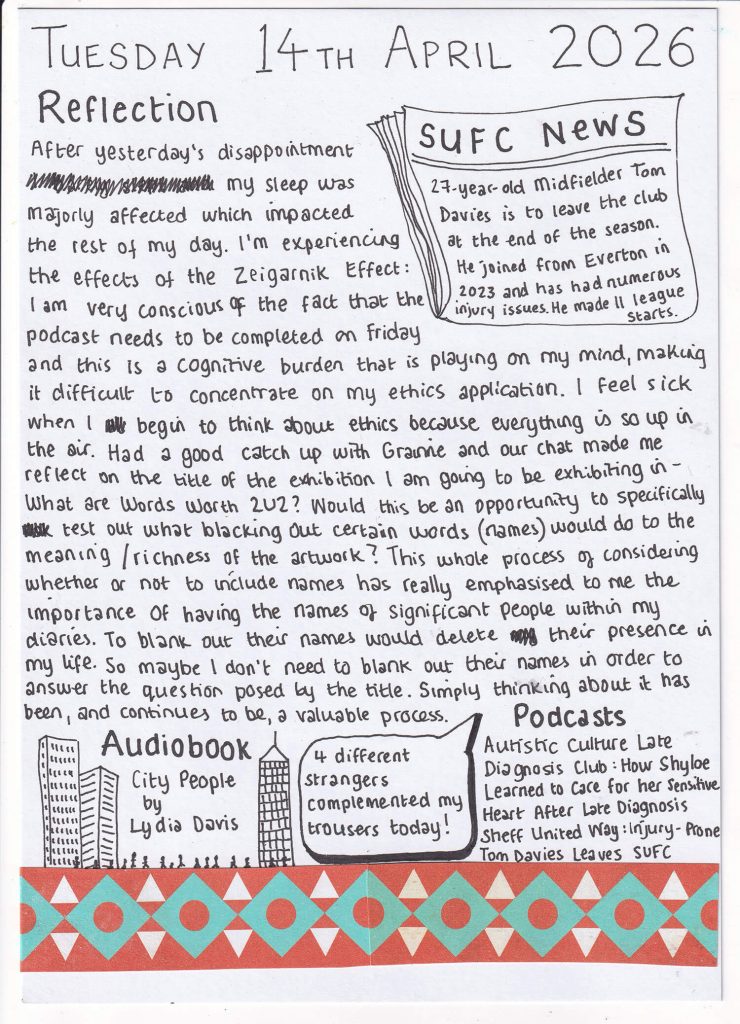 TUESDAY 14TH APRIL 2026
Reflection
After yesterday's disappointment
my sleep was
majorly affected which impacted
the rest of my day. I'm experiencing
the effects of the Zeigarnik Effect:
I am very conscious of the fact that the
podcast needs to be completed on Friday
and this is a cognitive burden that is playing on my mind, making
it difficult to concentrate on my ethics application. I feel sick
when I begin to think about ethics because everything is so up in
the air. Had a good catch up with Grainne and our chat made me
reflect on the title of the exhibition I am going to be exhibiting in -
What are Words Worth 2U2? Would this be an opportunity to specifically
test out what blacking out certain words (names) would do to the
meaning/richness of the artwork? This whole process of considering
whether or not to include names has really emphasised to me the
importance of having the names of significant people within my
diaries. To blank out their names would delete their presence in
my life. So maybe I don't need to blank out their names in order to
answer the question posed by the title. Simply thinking about it has
been, and continues to be, a valuable process.
SUFC NEWS
27-year-old Midfielder Tom
Davies is to leave the club
at the end of the season.
He joined from Everton in
2023 and has had numerous
injury issues. He made 11 league
starts.
Audiobook
City People
by
Lydia Davis
4 different
strangers
complemented my
trousers today!
Podcasts
Autistic Culture Late
Diagnosis Club: How Shyloe
Learned to Care for her Sensitive
Heart After Late Diagnosis
Sheff United Way: Injury-Prone
Tom Davies Leaves SUFC